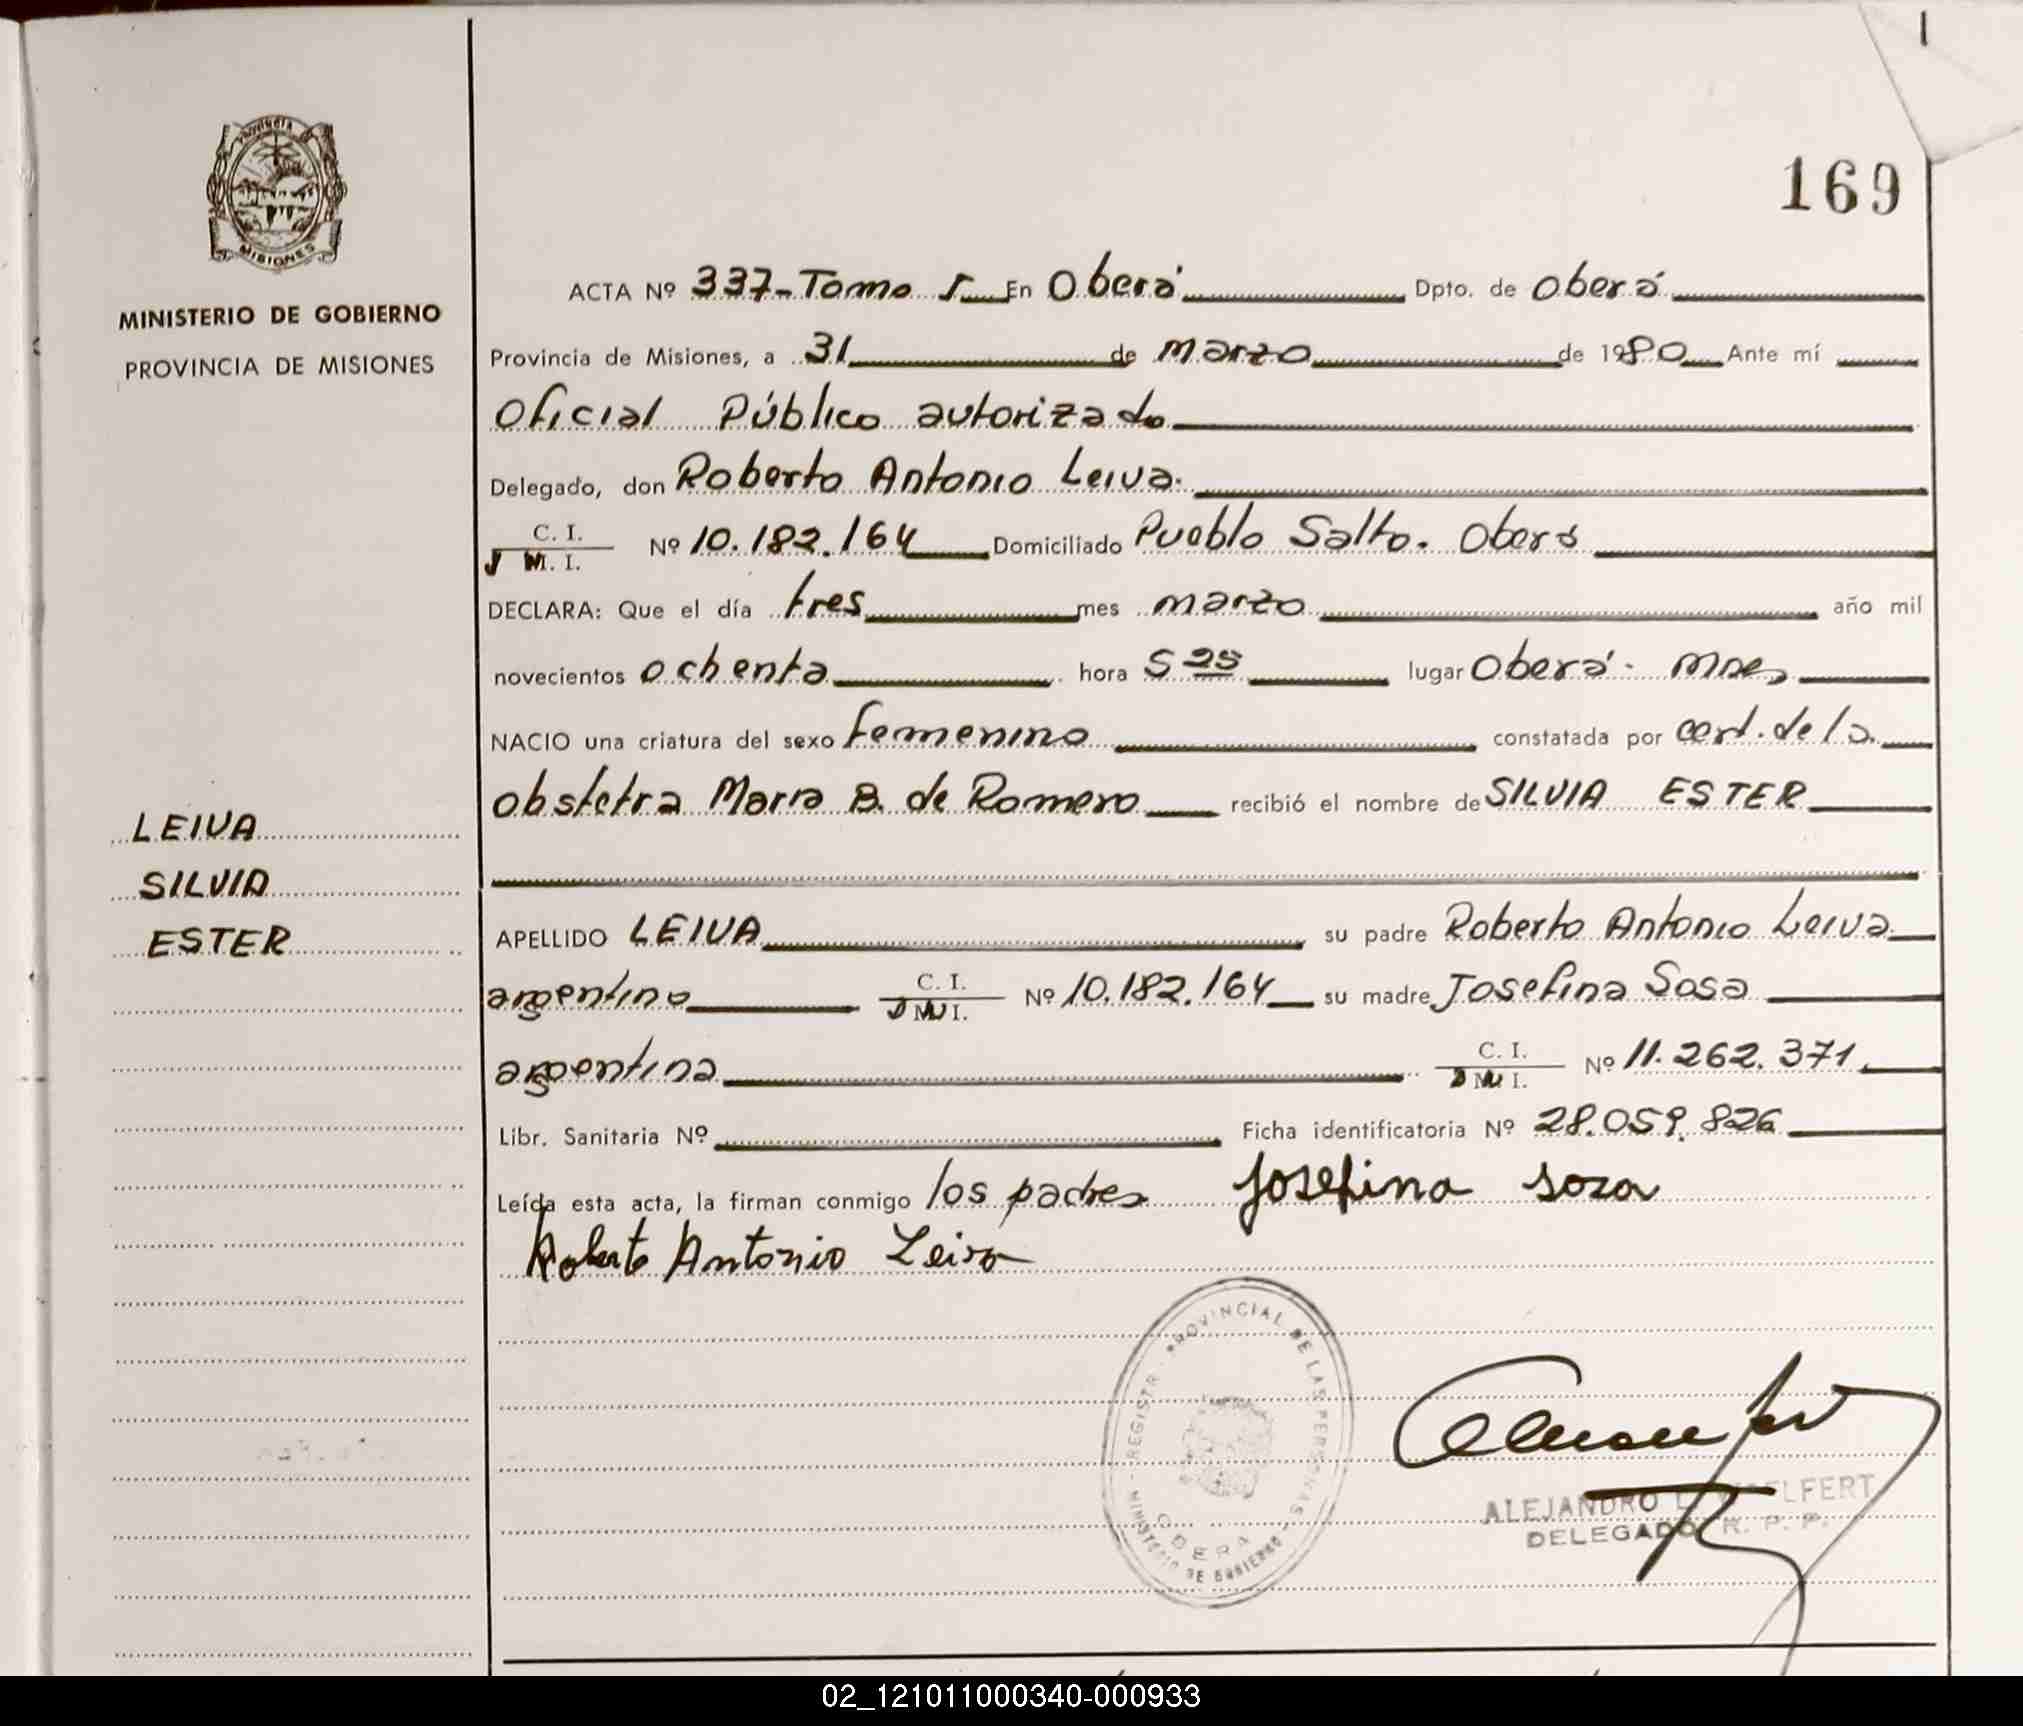 1
169
PROVINCIA
MISIONES
MINISTERIO DE GOBIERNO
PROVINCIA DE MISIONES
LEIVA
SILVIA
ESTER
ACTA Nº 337-Tomo I En Oberá Dpto. de Oberá
Provincia de Misiones, a 31 de marzo de 1980 Ante mí
Oficial Público autorizado
Delegado, don Roberto Antonio Leiva.
C. I.
D M. I. Nº 10.182.164 Domiciliado Pueblo Salto. Oberá
DECLARA: Que el día tres mes marzo año mil
novecientos ochenta hora 5 25 lugar Oberá - Mnes
NACIO una criatura del sexo femenino constatada por cert. de la
obstetra Maria B. de Romero recibió el nombre de SILVIA ESTER
APELLIDO LEIVA su padre Roberto Antonio Leiva
argentino C. I. Nº 10.182.164 su madre Josefina Sosa
D N I.
argentina C. I. Nº 11.262.371
D N I.
Libr. Sanitaria Nº Ficha identificatoria Nº 28.059.826
Leída esta acta, la firman conmigo los padres Josefina Sosa
Roberto Antonio Leiva
REGISTRO PROVINCIAL DE LAS PERSONAS
OBERA
MINISTERIO DE GOBIERNO
ALEJANDRO
DELEGADO R. P. P.
02_121011000340-000933